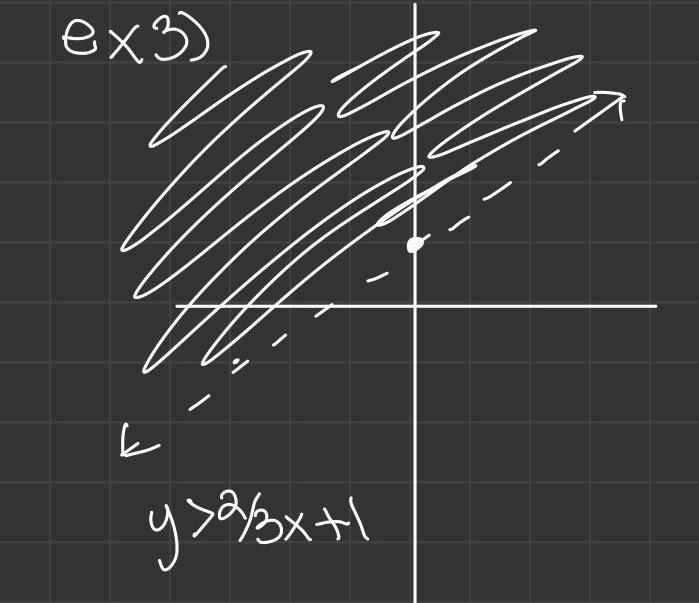 ex3)
y>2/3x+1